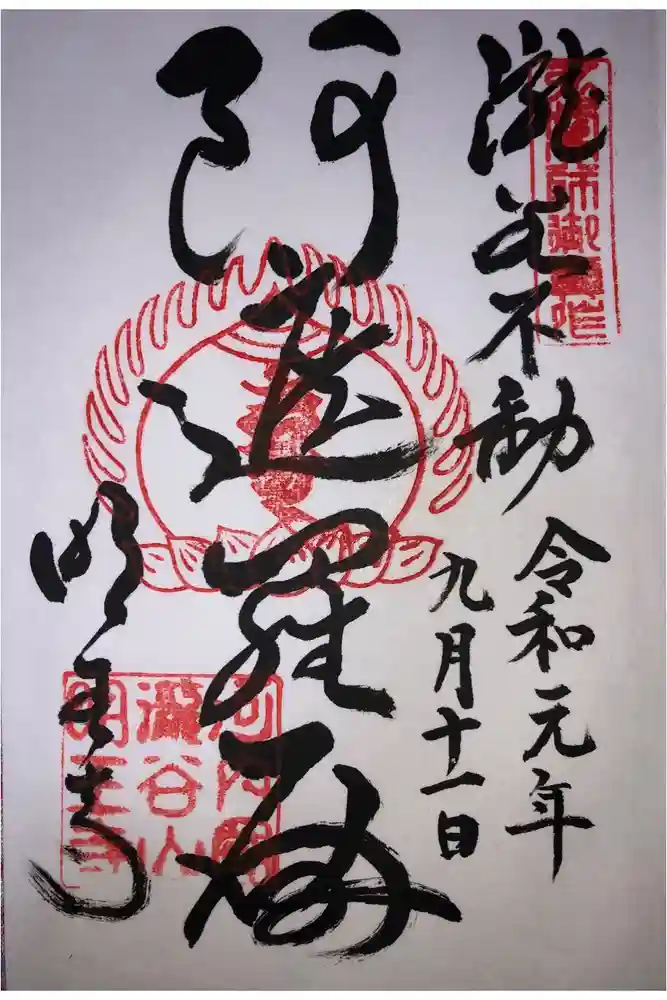 瀧谷不動
令和元年
九月十一日
阿遮羅
明王寺
河内國
瀧谷山
明王寺